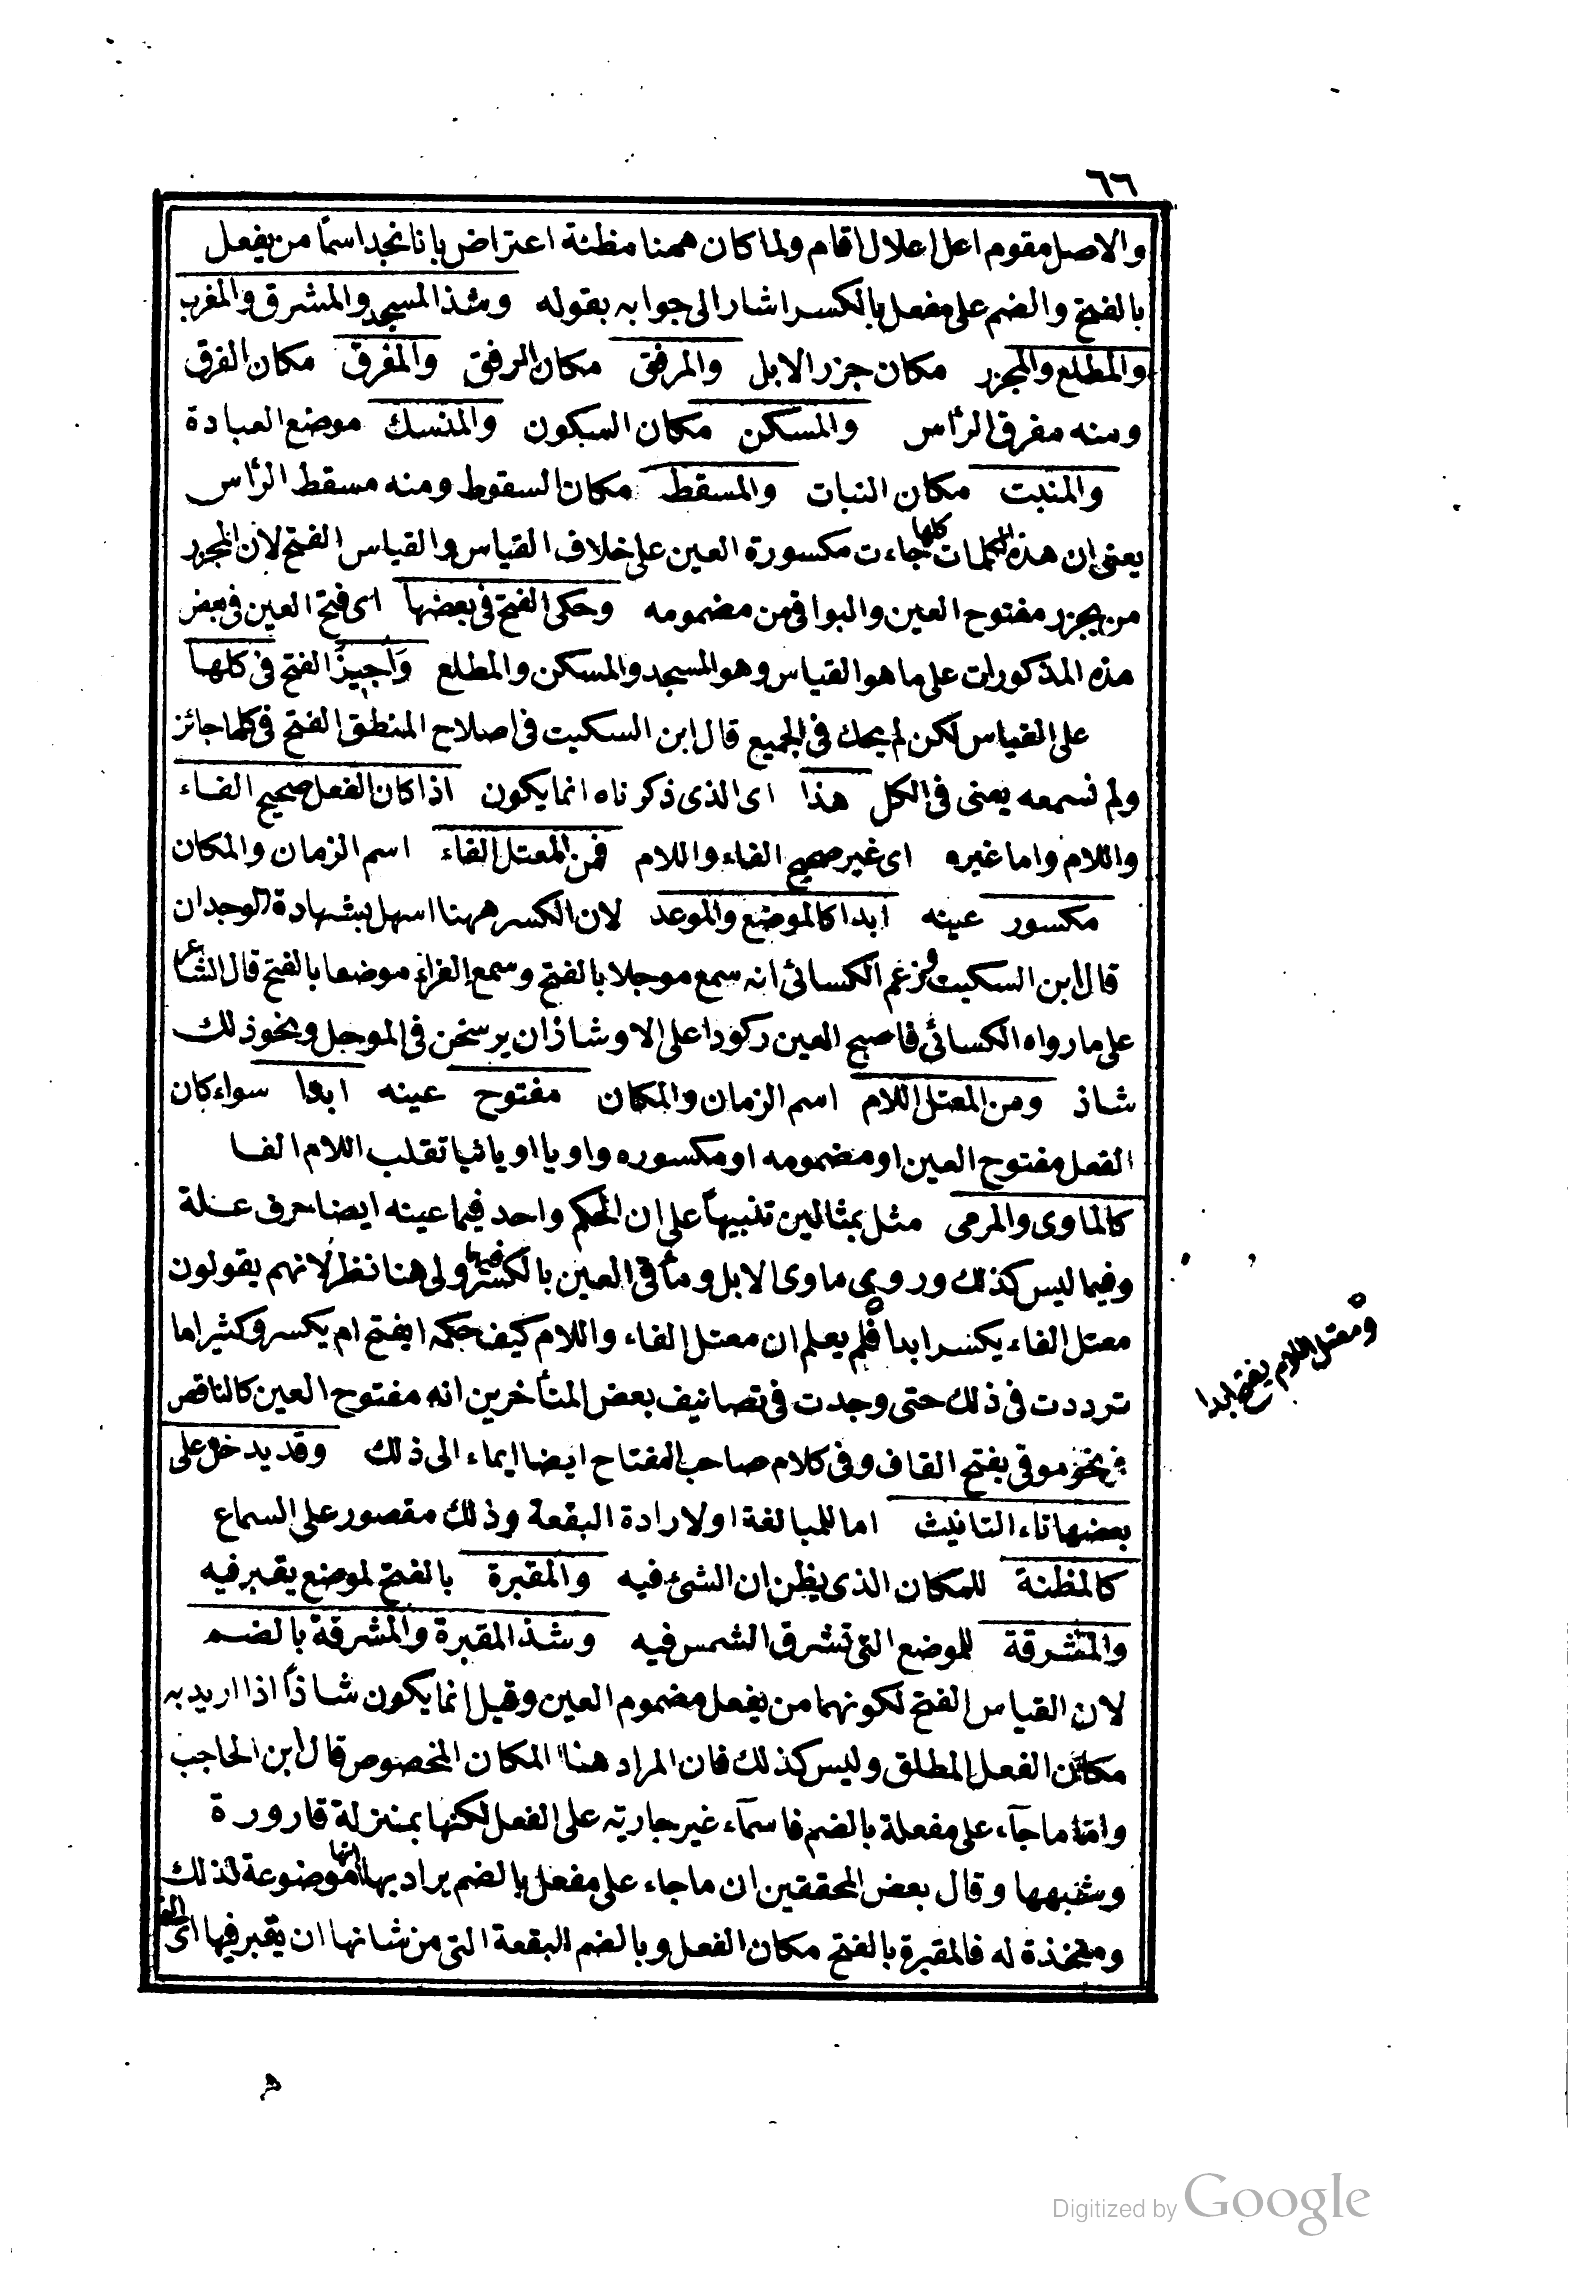 ٦٦
والاصل مقوم اعل اعلال اقام ولما كان ههنا مظنة اعتراض بانا نجد اسمًا من يفعل
بالفتح والضم على مفعل بالكسر اشار الى جوابه بقوله وشذ المسجد والمشرق والمغرب
والمطلع والمجزر مكان جزر الابل والمرفق مكان الرفق والمفرق مكان الفرق
ومنه مفرق الرأس والمسكن مكان السكون والمنسك موضع العبادة
والمنبت مكان النبات والمسقط مكان السقوط ومنه مسقط الرأس
يعنى ان هذه الكلمات كلها جاءت مكسورة العين على خلاف القياس والقياس الفتح لان المجزر
من يجزر مفتوح العين والبواقى من مضمومه وحكى الفتح فى بعضها اى فتح العين فى بعض
هذه المذكورات على ما هو القياس وهو المسجد والمسكن والمطلع وَاُجيزَ الفتح فى كلها
على القياس لكن لم يحك فى الجميع قال ابن السكيت فى اصلاح المنطق الفتح فى كلها جائز
ولم نسمعه يعنى فى الكل هذا اى الذى ذكرناه انما يكون اذا كان الفعل صحيح الفاء
واللام واما غيره اى غير صحيح الفاء واللام فمن المعتل الفاء اسم الزمان والمكان
مكسور عينه ابدا كالموضع والموعد لان الكسر ههنا اسهل بشهادة الوجدان
قال ابن السكيت وزعم الكسائى انه سمع موجلا بالفتح وسمع الفراء موضعا بالفتح قال الشاعر
على ما رواه الكسائى فاصبح العين ركودا على الاوشاذ ان يرسخن فى الموجل ونحو ذلك
شاذ ومن المعتل اللام اسم الزمان والمكان مفتوح عينه ابدا سواء كان
الفعل مفتوح العين او مضمومه او مكسوره واويا او يائيا تقلب اللام الفا
كالماوى والمرمى مثل بمثالين تنبيهاً على ان الحكم واحد فيما عينه ايضا حرف علة
وفيما ليس كذلك وروى ماوى الابل ومأقى العين بالكسر فيهما ولى هنا نظر لانهم يقولون
معتل الفاء يكسر ابدا فلم يعلم ان معتل الفاء واللام كيف حكمه ايفتح ام يكسر وكثيرا ما
ومعتل اللام يفتح ابدا
ترددت فى ذلك حتى وجدت فى تصانيف بعض المتأخرين انه مفتوح العين كالناقص
فى نحو موقى بفتح القاف وفى كلام صاحب المفتاح ايضا ايماء الى ذلك وقد يدخل على
بعضها تاء التانيث اما للمبالغة او لارادة البقعة وذلك مقصور على السماع
كالمظنة للمكان الذى يظن ان الشئ فيه والمقبرة بالفتح لموضع يقبر فيه
والمشرقة للموضع التى تشرق الشمس فيه وشذ المقبرة والمشرقة بالضم
لان القياس الفتح لكونهما من يفعل مضموم العين وقيل انما يكون شاذاً اذا اريد به
مكان الفعل المطلق وليس كذلك فان المراد هنا المكان المخصوص قال ابن الحاجب
واما ما جآء على مفعلة بالضم فاسمآء غير جارية على الفعل لكنها بمنزلة قارورة
وشبهها وقال بعض المحققين ان ما جاء على مفعل بالضم يراد بها انها موضوعة لذلك
ومتخذة له فالمقبرة بالفتح مكان الفعل وبالضم البقعة التى من شانها ان يقبر فيها اى
Digitized by Google